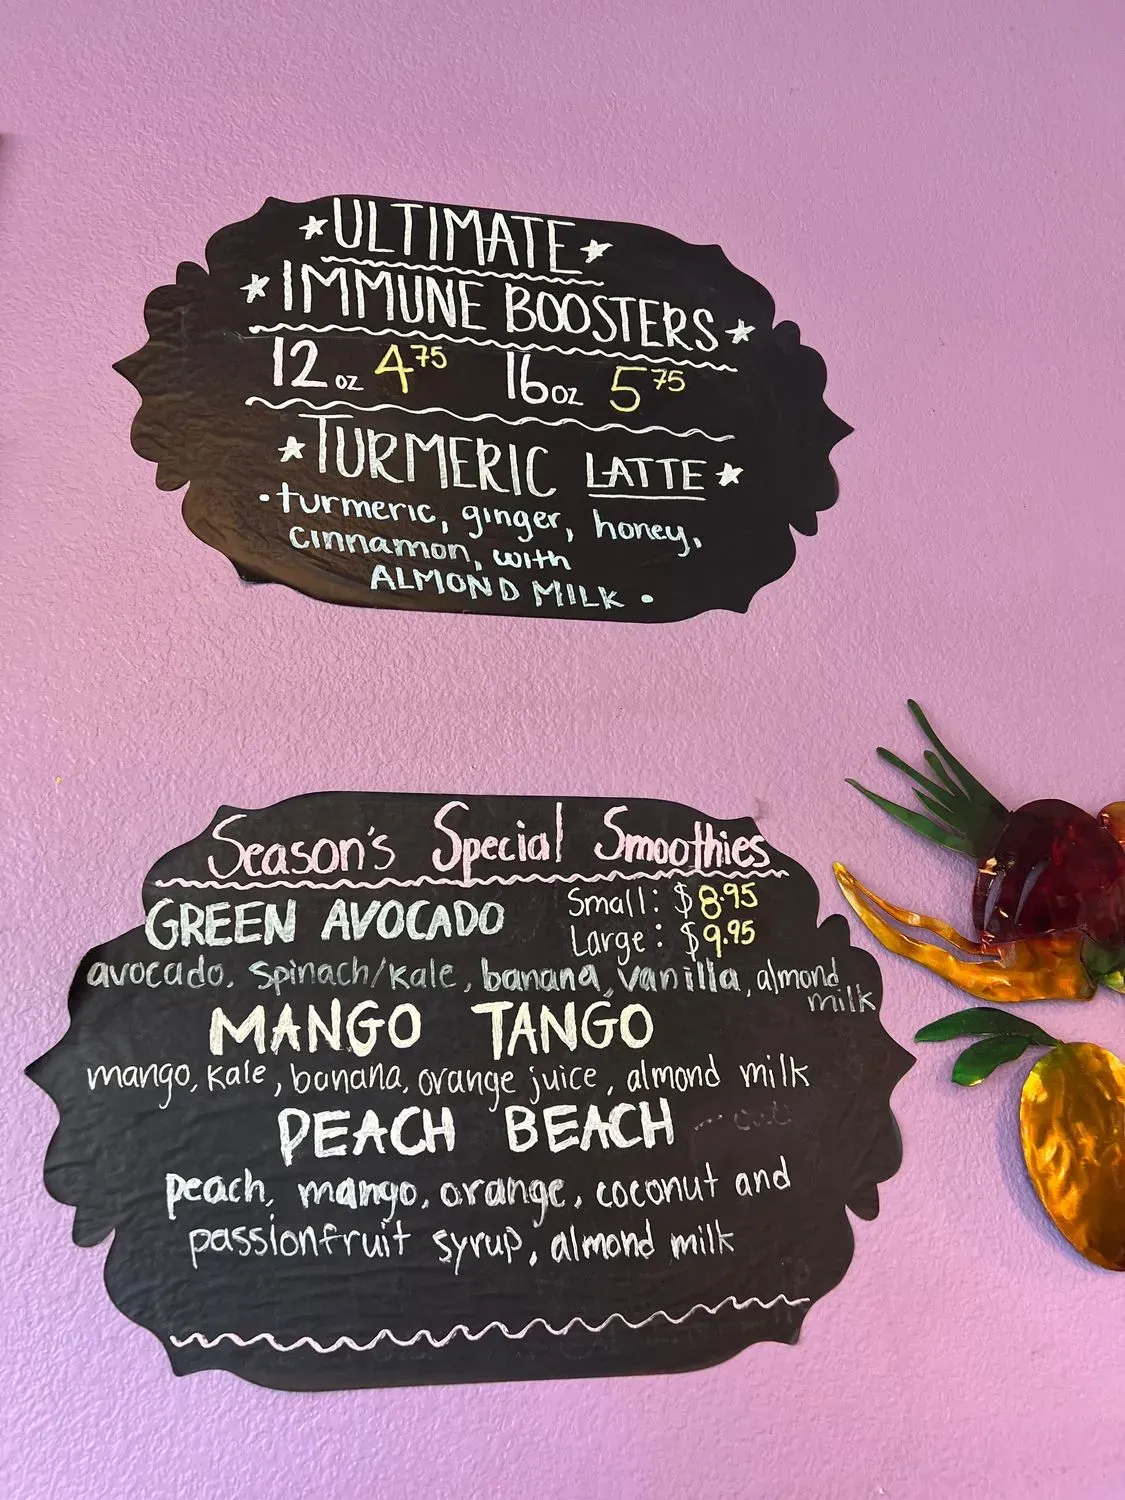 ULTIMATE
IMMUNE BOOSTERS
12 oz 4.75 16 oz 5.75
TURMERIC LATTE
• turmeric, ginger, honey,
cinnamon, with
ALMOND MILK •
Season's Special Smoothies
GREEN AVOCADO
Small: $8.95
Large: $9.95
avocado, spinach/kale, banana, vanilla, almond
milk
MANGO TANGO
mango, kale, banana, orange juice, almond milk
PEACH BEACH
peach, mango, orange, coconut and
passionfruit syrup, almond milk